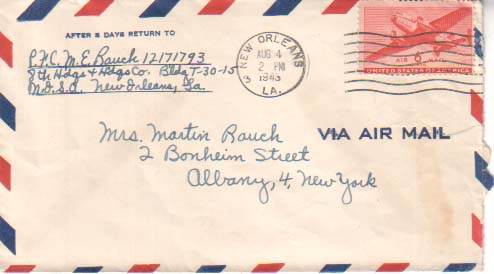 AFTER 5 DAYS RETURN TO
P.F.C. M.E. Rauch 12171793
8th Hdqs & Hdqs Co. Bldg T-30-15
New Orleans, La.
NEW ORLEANS
AUG 4
2 PM
1943
LA.
AIR 6¢ MAIL
UNITED STATES OF AMERICA
VIA AIR MAIL
Mrs. Martin Rauch
2 Bonheim Street
Albany, 4, New York